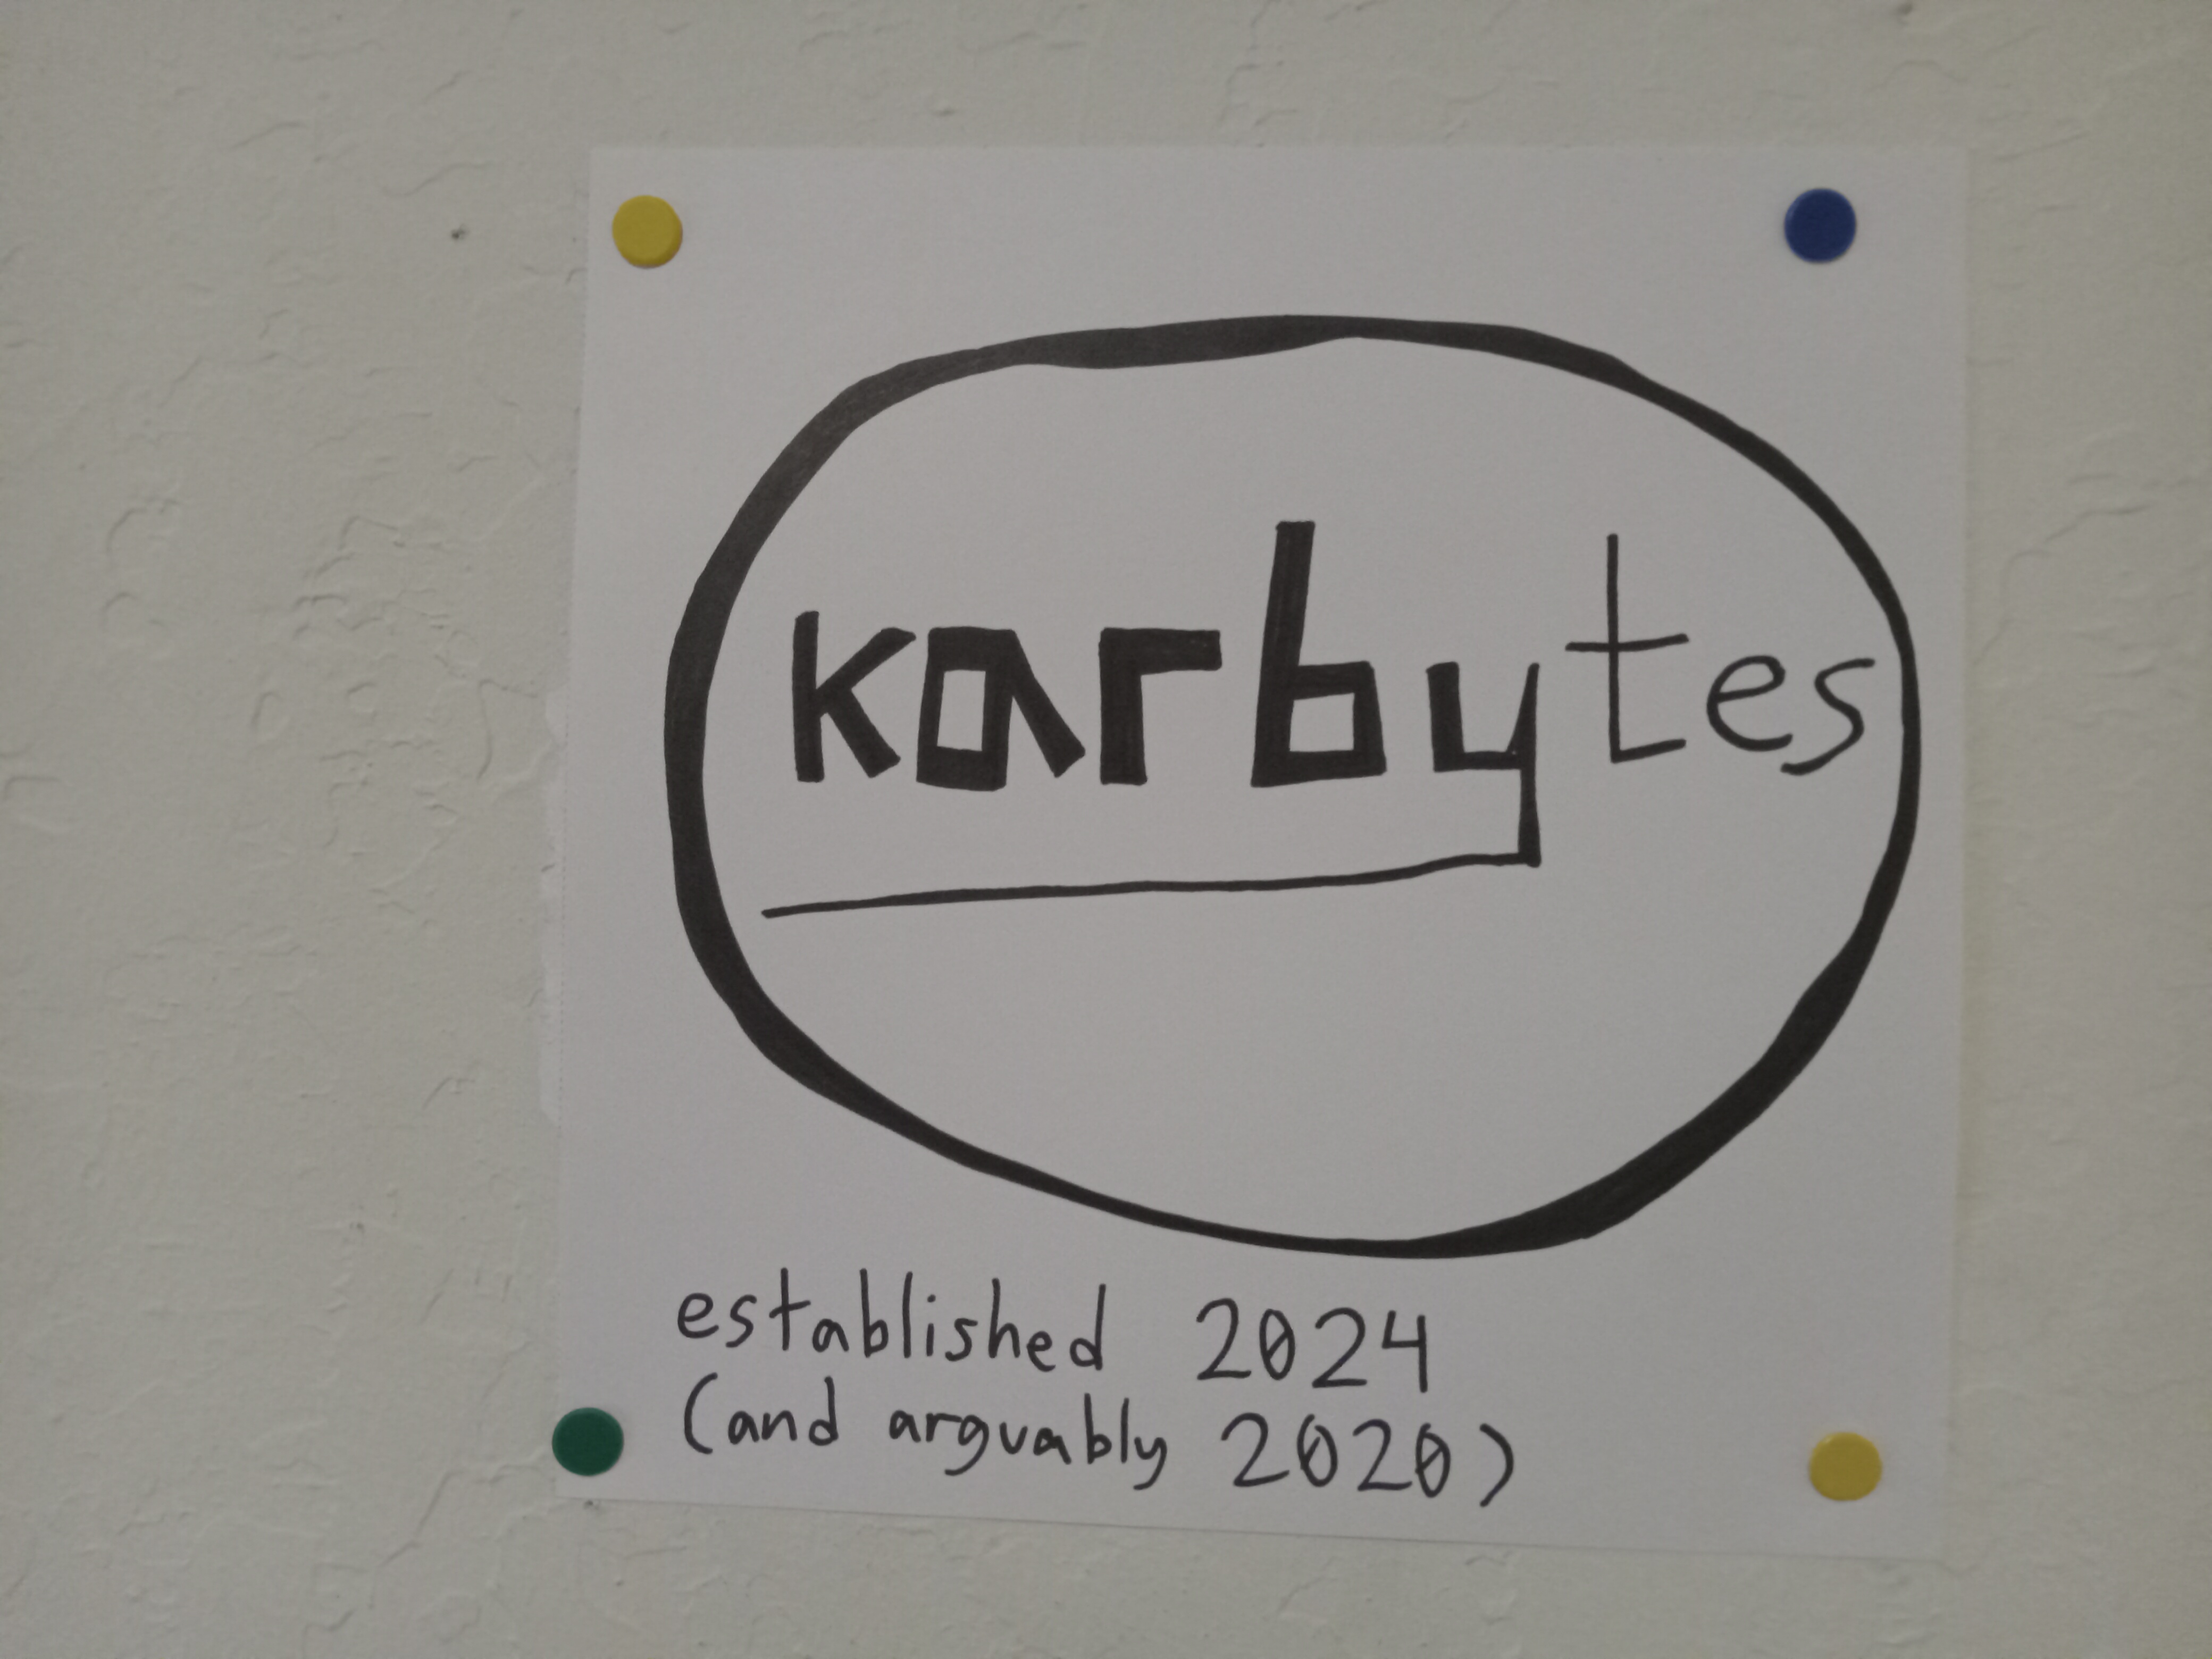 karbytes
established 2024
(and arguably 2020)